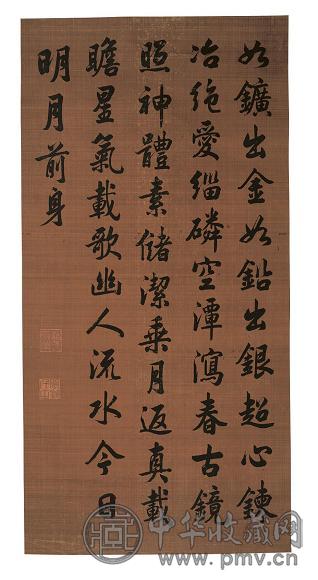 如鑛出金如鉛出銀超心鍊
冶絶愛緇磷空潭瀉春古鏡
照神體素儲潔乘月返真載
瞻星氣載歌幽人流水今日
明月前身
中华收藏网
www.pmv.cn